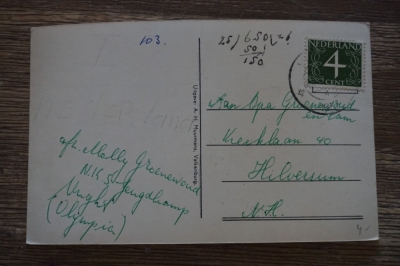 103.
25/650/=!
50
150
NEDERLAND
4
CENT
Uitgave: A. H. Meussen, Valkenburg
Aan Opa Groenewoud
en Tam
Kerklaan 40
Hilversum
N.H.
afz. Molly Groenewoud
N.K. Jeugdkamp
Vught
(Olympia)
4,-